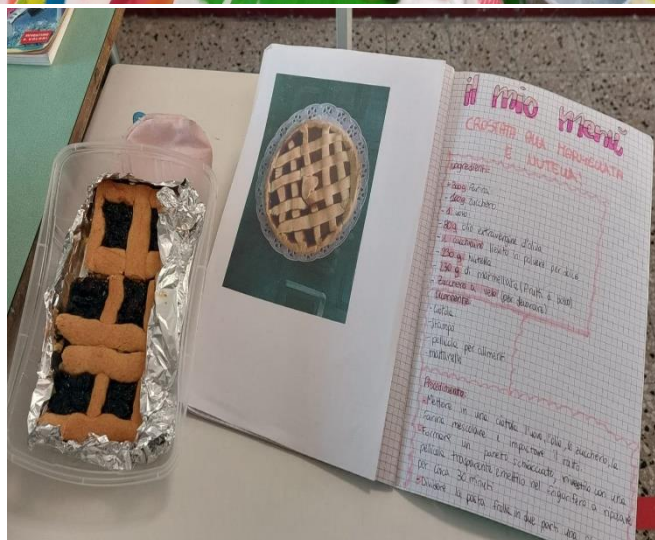 il mio menù
CROSTATA ALLA MARMELLATA
E NUTELLA:
Ingredienti:
farina
zucchero
- 1 uovo
olio extravergine d'oliva
- 1 cucchiaino lievito in polvere per dolci
nutella
g di marmellata (frutti di bosco)
- zucchero a velo (per decorare)
Strumenti:
- ciotola
- stampo
- pellicola per alimenti
mattarello
Procedimento:
Mettere in una ciotola l'uovo, l'olio, lo zucchero, la
farina mescolare e impastare il tutto.
Formare un panetto, schiacciato, con una
pellicola trasparente e metterlo nel frigorifero a riposare
per circa 30 minuti
Dividere la pasta frolla in due parti una